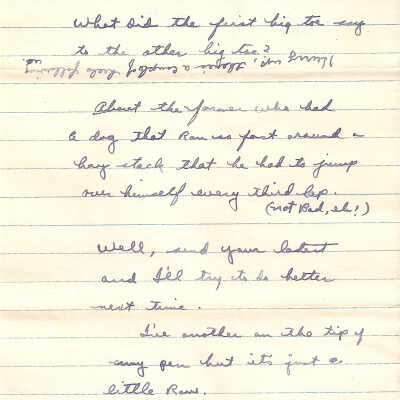 What did the first big toe say
to the other big toe?
Hurry up, there's a couple of heels following
us.
About the farmer who had
a dog that Ran so fast around a
hay stack that he had to jump
over himself every third lap.
(not Bad, eh!)
Well, send your latest
and I'll try to do better
next time.
I've another on the tip of
my pen but it's just a
little Raw.